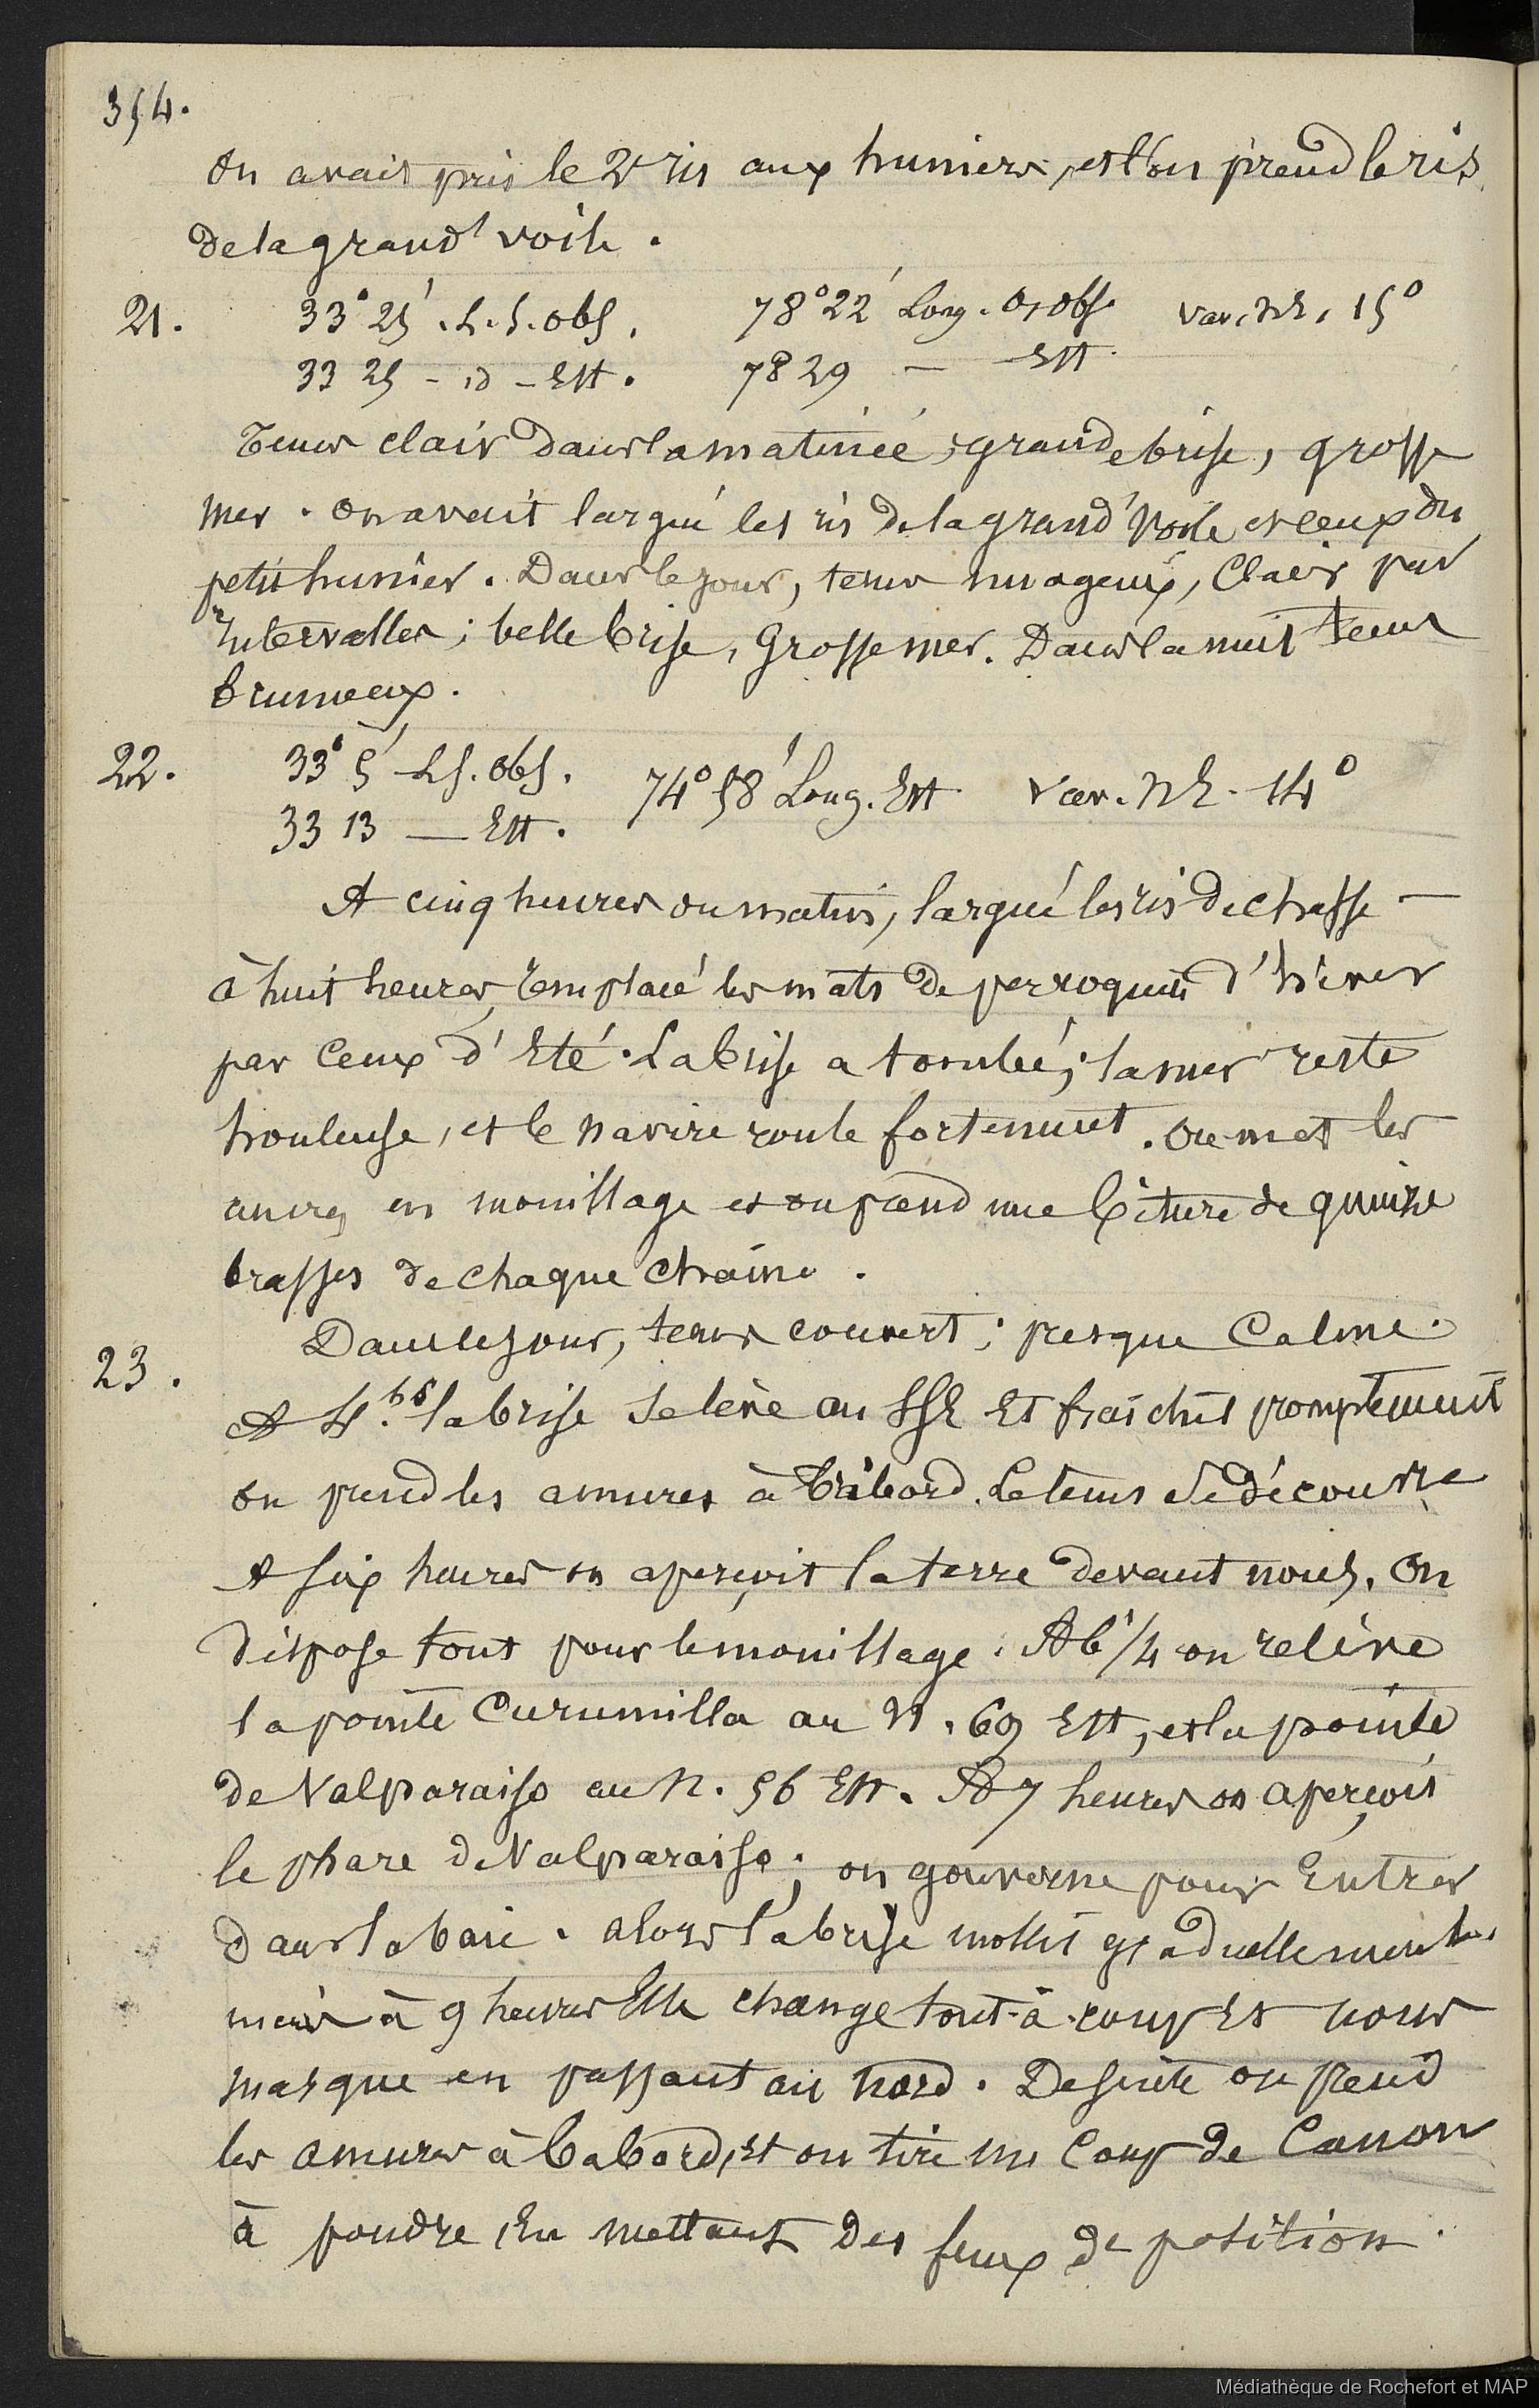 354.
On avait pris le 2e ris aux huniers, et l'on prend le ris
de la grand' voile.
21. 33° 25' . L. S. obs. 78° 22' Long. O. obs. Var. NE. 15°
33 25 - id - Est. 78 29 — Est.
Tems clair dans la matinée ; grande brise, grosse
mer . on avait largué les ris de la grand' voile et ceux du
petit hunier . Dans le jour, tems nuageux, Clair par
Intervalles ; belle brise, Grosse mer. Dans la nuit tems
brumeux.
22. 33° 5' L S. obs. 74° 58' Long. Est. Var. NE. 14°
33 13 — Est.
A cinq heures du matin, largué les ris de chasse —
à huit heures, remplacé les mâts de perroquet d'hiver
par Ceux d'Eté. La brise a tombé ; la mer reste
houleuse, et le navire roule fortement. On met les
ancres en mouillage et on prend une biture de quinze
brasses de chaque chaîne .
Dans le jour, tems couvert ; presque Calme.
23. A 4.hs la brise se lève au SSE Et fraîchit promptement
on prend les amures à tribord. Le tems se découvre
A six heures on aperçoit la terre devant nous. On
dispose tout pour le mouillage. A 6 1/4 on relève
la pointe Curumilla au N. 69 Est, et la pointe
de Valparaiso au N. 56 Est. A 7 heures on aperçoit
le phare de Valparaiso ; on gouverne pour Entrer
dans la baie . alors la brise mollit graduellement
mais à 9 heures Elle change tout-à-coup Et nous
masque en passant au nord . De suite on prend
les amures à babord, Et on tire un Coup de Canon
à poudre, En mettant des feux de position .
Médiathèque de Rochefort et MAP